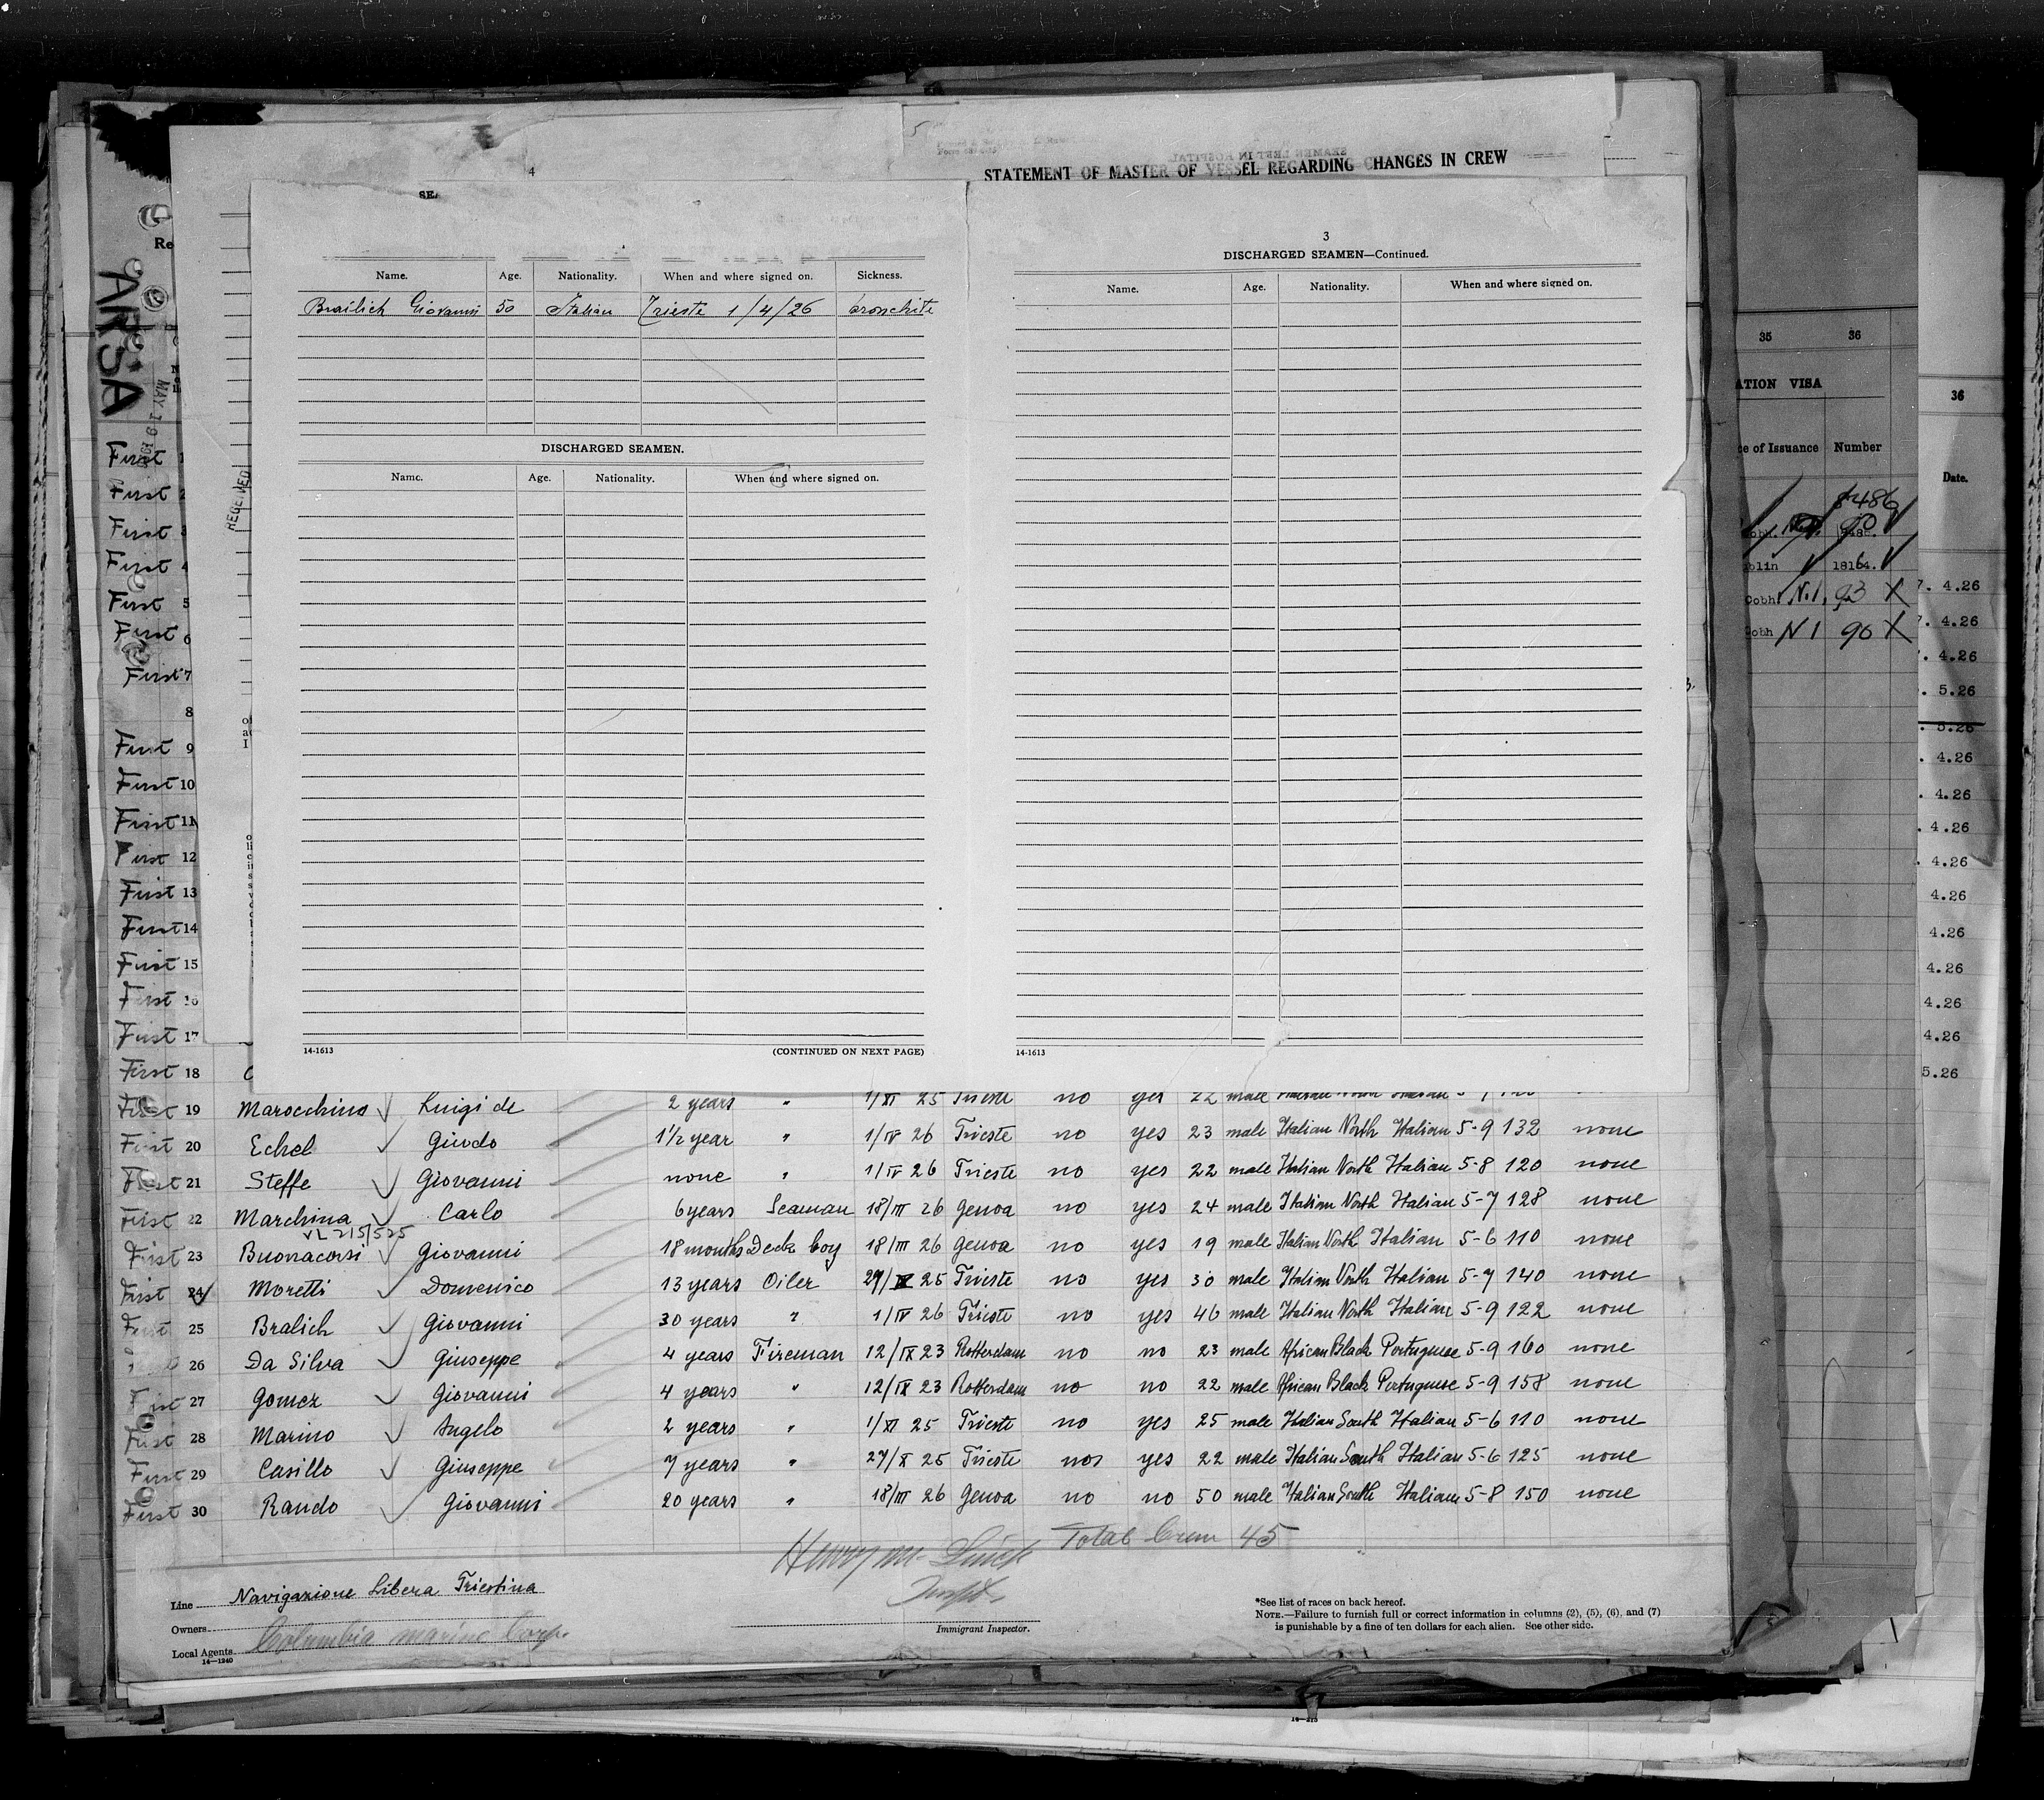 4
5
STATEMENT OF MASTER OF VESSEL REGARDING CHANGES IN CREW
SE
Re
ARSA
Name. Age. Nationality. When and where signed on. Sickness.
Brailich Giovanni 50 Italian Trieste 1/4/26 bronchite
DISCHARGED SEAMEN.
Name. Age. Nationality. When and where signed on.
14-1613 (CONTINUED ON NEXT PAGE)
3
DISCHARGED SEAMEN—Continued.
Name. Age. Nationality. When and where signed on.
14-1613
35 36
ATION VISA
ce of Issuance Number
36
Date.
8486
18164.
Cobh N.1. 93 X
Cobh N 1 90 X
7. 4.26
7. 4.26
. 4.26
. 5.26
. 5.26
. 4.26
. 4.26
. 4.26
. 4.26
4.26
4.26
4.26
4.26
4.26
5.26
RECEIVED
First
First 2
First 3
First 4
First 5
First 6
First 7
8
First 9
First 10
First 11
First 12
First 13
First 14
First 15
First 16
First 17
First 18
First 19 Marocchino Luigi de 2 years " 1/XI 25 Trieste no yes 22 male
First 20 Echel Giusto 1½ year " 1/IV 26 Trieste no yes 23 male Italian North Italian 5-9 132 none
First 21 Steffe Giovanni none " 1/IV 26 Trieste no yes 22 male Italian North Italian 5-8 120 none
First 22 Marchina Carlo 6 years Seaman 18/III 26 Genoa no yes 24 male Italian North Italian 5-7 128 none
VL 215/525
First 23 Buonacorsi Giovanni 18 months Deck boy 18/III 26 Genoa no yes 19 male Italian North Italian 5-6 110 none
First 24 Moretti Domenico 13 years Oiler 25 Trieste no yes 30 male Italian North Italian 5-7 140 none
First 25 Bralich Giovanni 30 years " 1/IV 26 Trieste no yes 46 male Italian North Italian 5-9 122 none
26 Da Silva Giuseppe 4 years Fireman 12/IX 23 Rotterdam no no 23 male African Black Portuguese 5-9 160 none
First 27 Gomez Giovanni 4 years " 12/IX 23 Rotterdam no no 22 male African Black Portuguese 5-9 158 none
First 28 Marino Angelo 2 years " 1/XI 25 Trieste no yes 25 male Italian South Italian 5-6 110 none
First 29 Casillo Giuseppe 7 years " 27/X 25 Trieste no yes 22 male Italian South Italian 5-6 125 none
First 30 Rando Giovanni 20 years " 18/III 26 Genoa no no 50 male Italian South Italian 5-8 150 none
Total Crew 45
Line Navigazione Libera Triestina
Owners
Local Agents Columbia Marine Corp.
14-1240
Immigrant Inspector.
*See list of races on back hereof.
NOTE.—Failure to furnish full or correct information in columns (2), (5), (6), and (7)
is punishable by a fine of ten dollars for each alien. See other side.